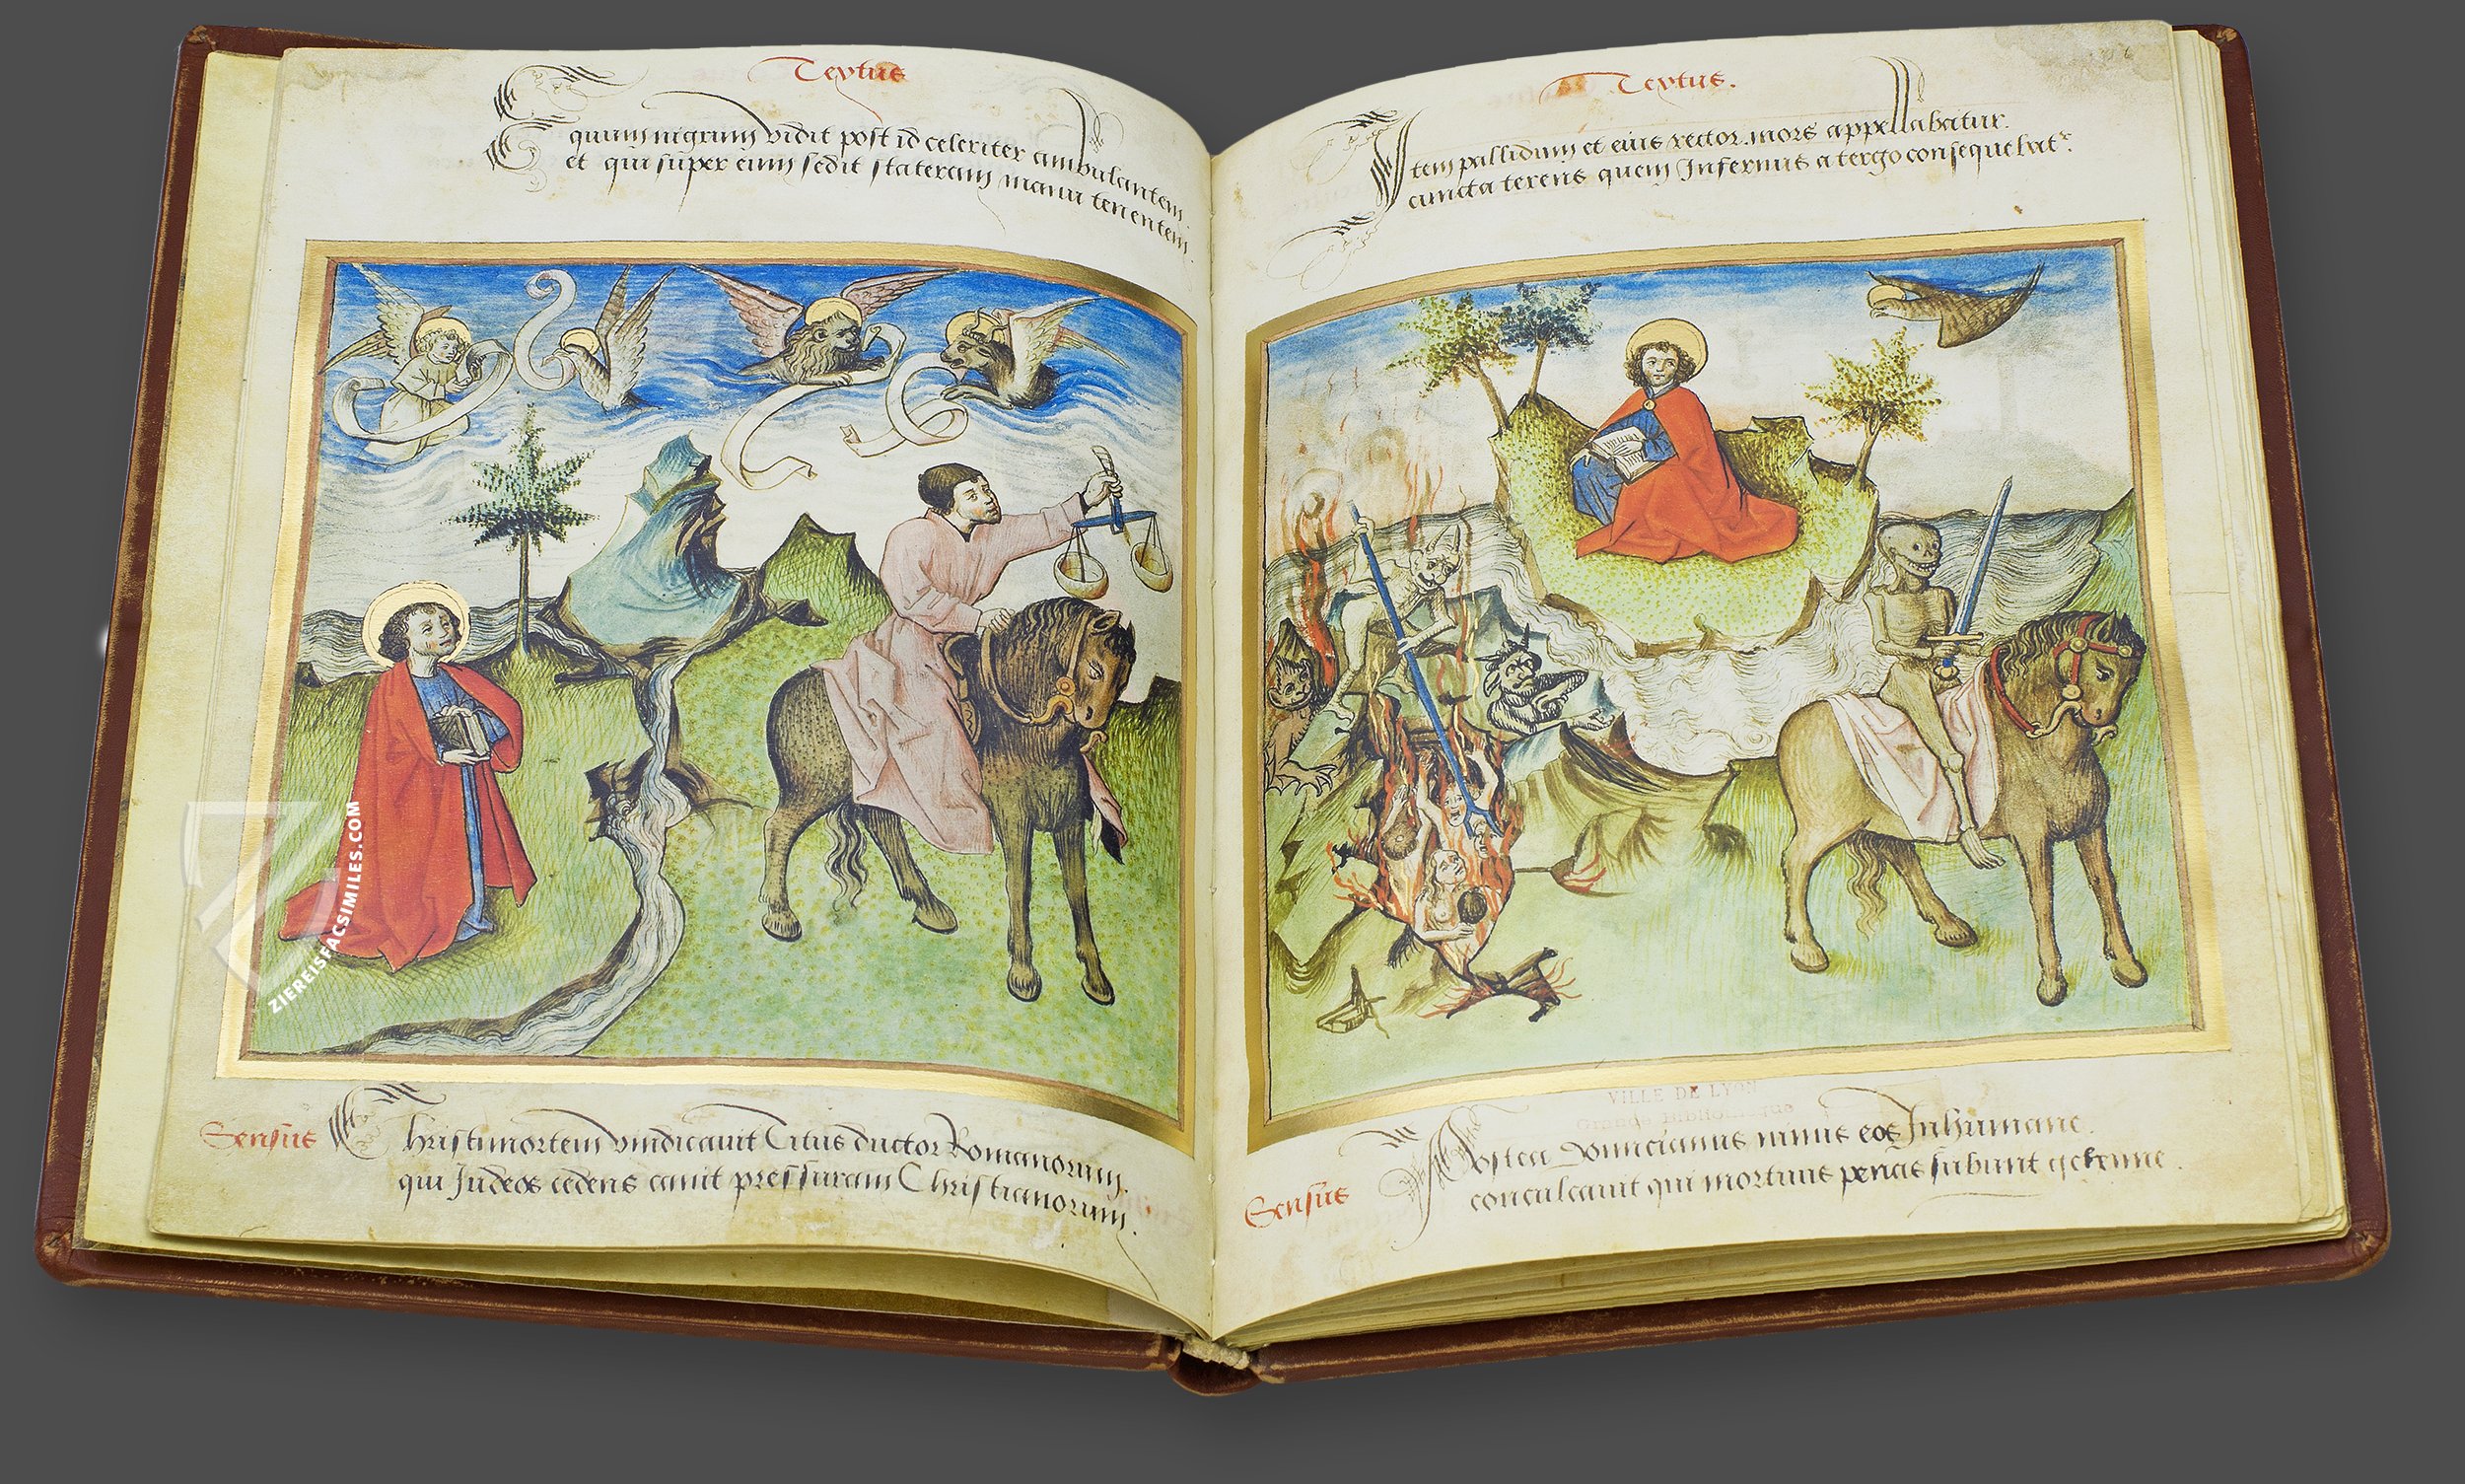 Textus
Equum nigrum vidit post id celeriter ambulantem
et qui super eum sedit stateram manu tenentem
Sensus Christi mortem vindicavit Titus ductor Romanorum.
qui Judeos cedens cavit pressuram Christianorum.
Textus.
Item pallidum et eius rector mors appellabatur.
cuncta terens quem Infernus a tergo consequebat᷑.
VILLE DE LYON
Grande Bibliothèque
Sensus Postea Domicianus nimis eos Inhumane.
conculcavit qui mortuus penas subiit gehenne.
ZIEREISFACSIMILES.COM